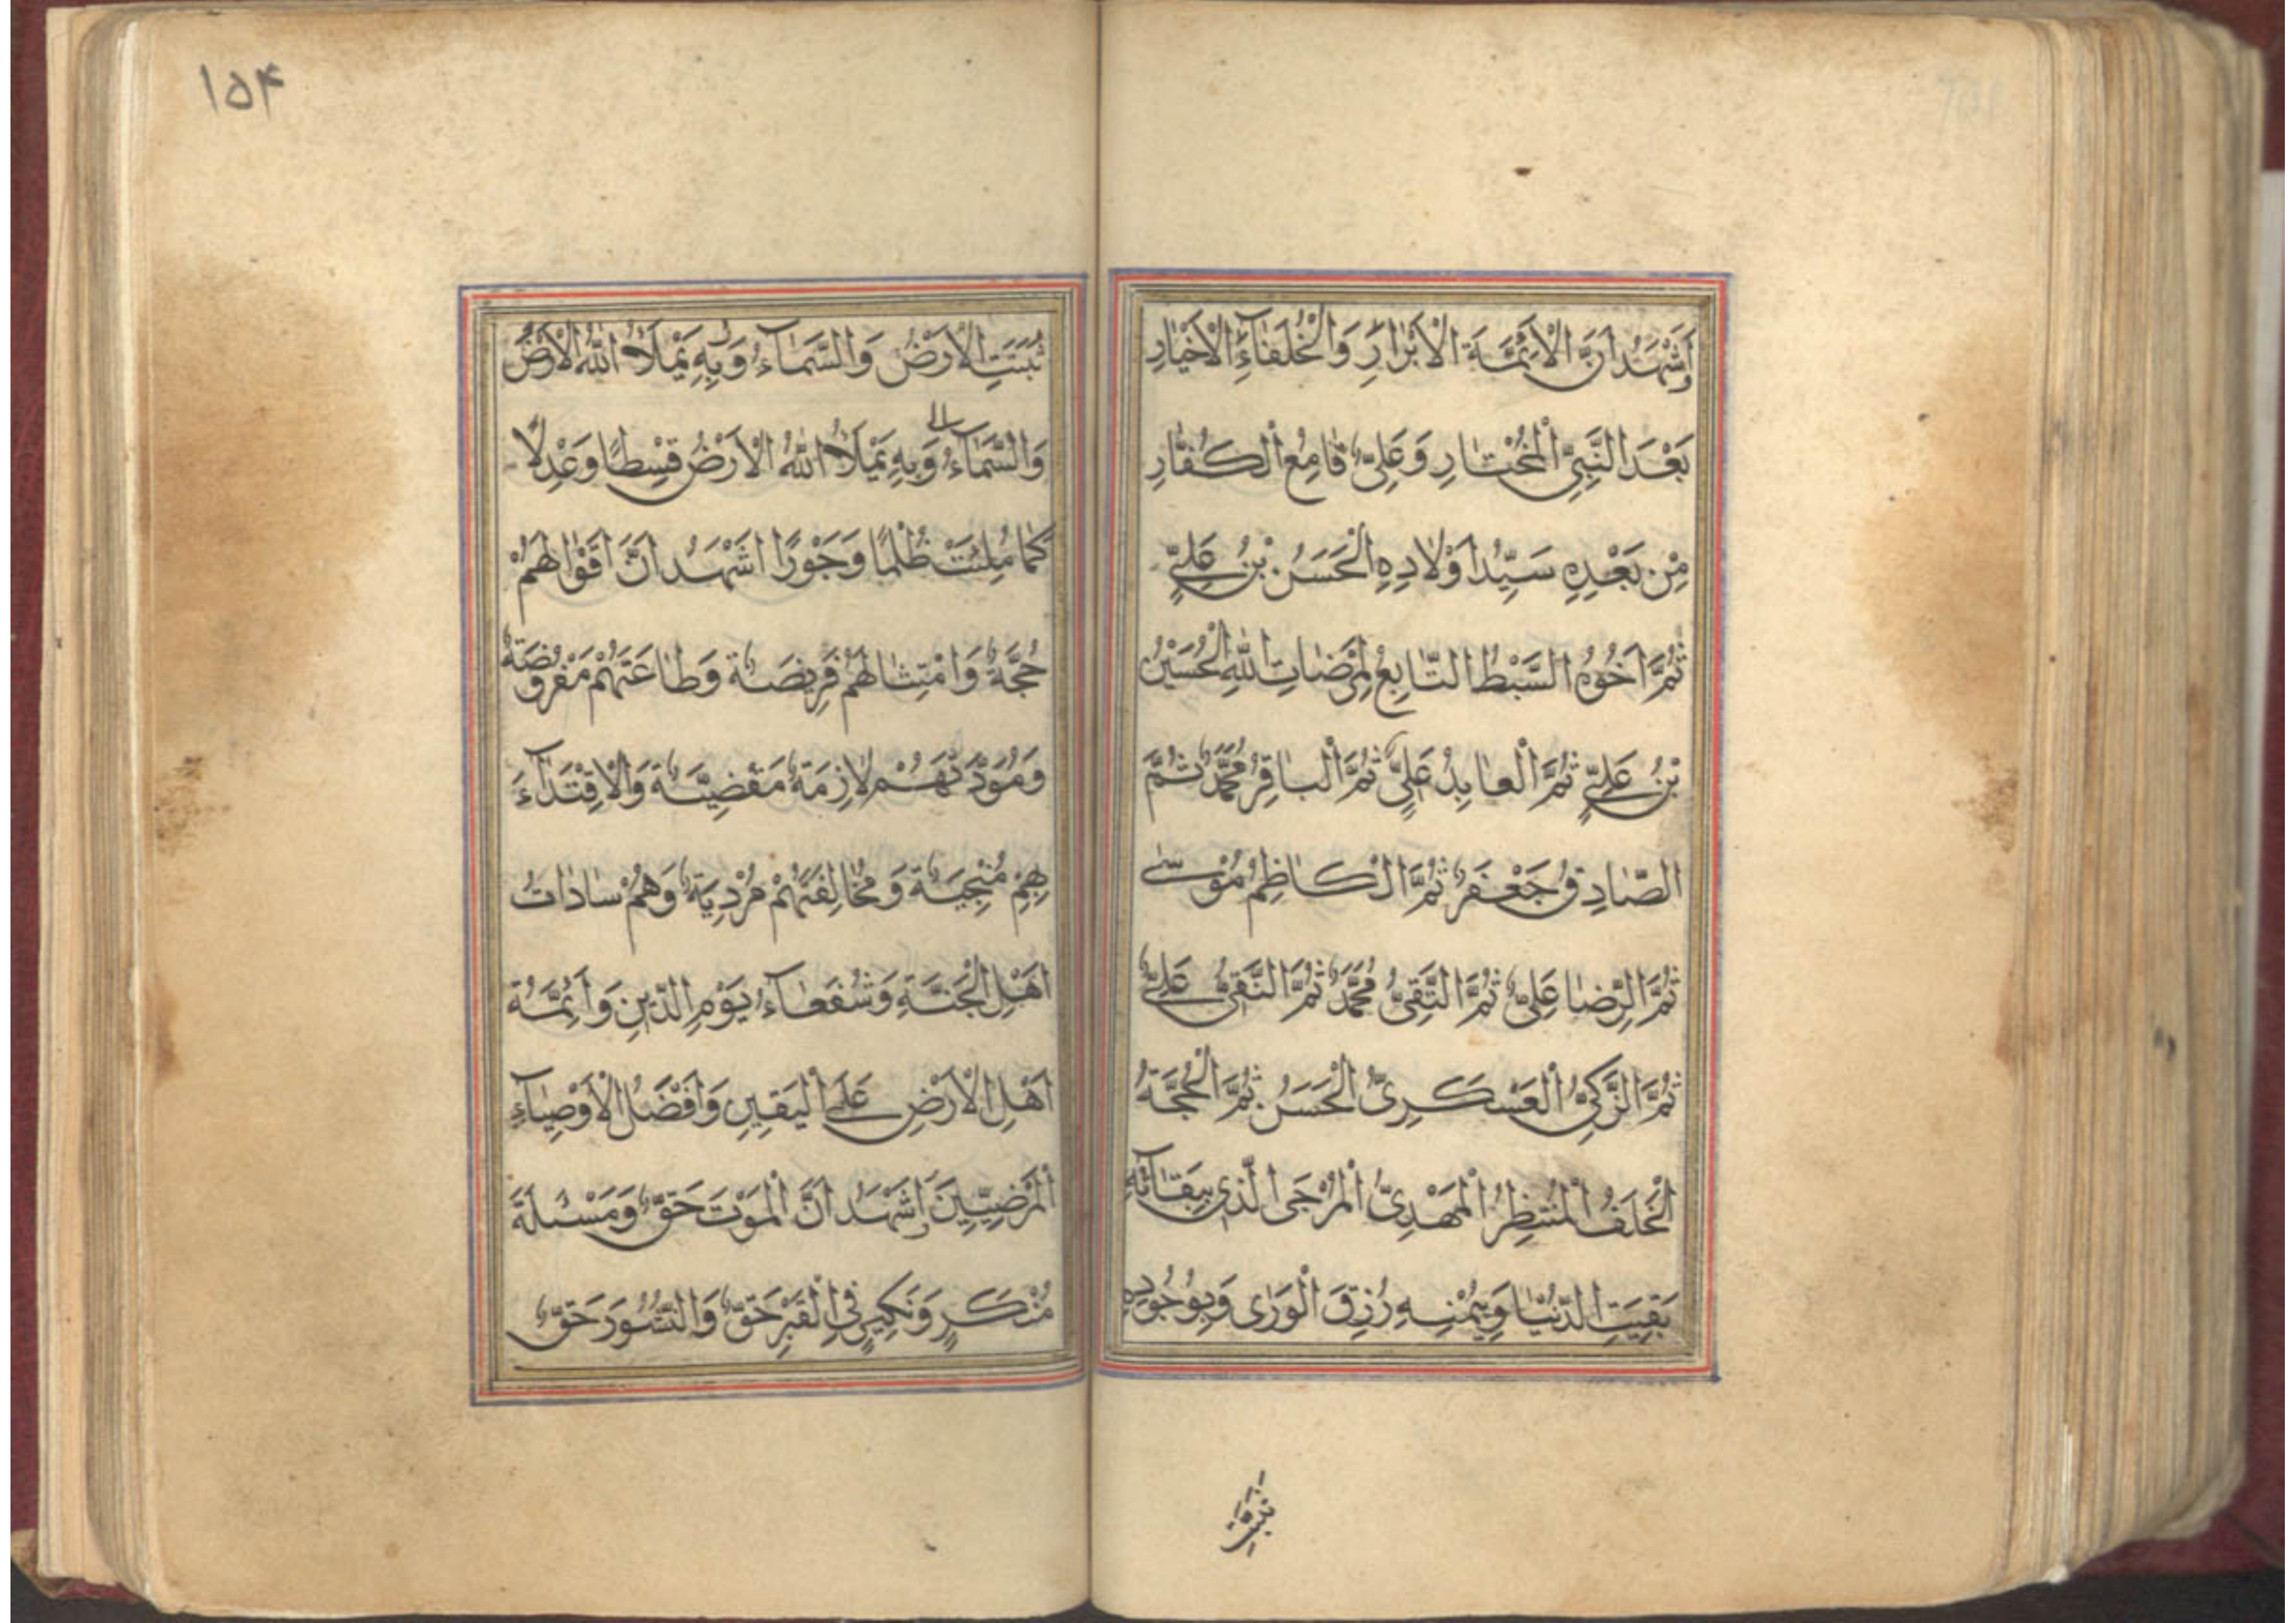 وَاَشْهَدُ اَنَّ الْاَئِمَّةَ الْاَبْرٰارَ وَالْخُلَفٰآءَ الْاَخْيٰارِ
بَعْدَ النَّبِىِّ الْمُخْتٰارِ وَعَلِىٌّ قٰامِعُ الْكُفّٰارِ
مِنْ بَعْدِهِ سَيِّدُ اَوْلٰادِهِ الْحَسَنُ بْنُ عَلِىٍّ
ثُمَّ اَخُوْهُ السَّبْطُ التّٰابِعُ لِمَرْضٰاتِ اللّٰهِ الْحُسَيْنُ
بْنُ عَلِىٍّ ثُمَّ الْعٰابِدُ عَلِىٌّ ثُمَّ الْبٰاقِرُ مُحَمَّدٌ ثُمَّ
الصّٰادِقُ جَعْفَرٌ ثُمَّ الْكٰاظِمُ مُوْسٰى
ثُمَّ الرِّضٰا عَلِىٌّ ثُمَّ التَّقِىُّ مُحَمَّدٌ ثُمَّ النَّقِىُّ عَلِىٌّ
ثُمَّ الزَّكِىُّ الْعَسْكَرِىُّ الْحَسَنُ ثُمَّ الْحُجَّةُ
الْخَلَفُ الْمُنْتَظِرُ الْمَهْدِىُّ الْمُرْجَى الَّذِى بِبَقٰآئِهِ
بَقِيَتِ الدُّنْيٰا وَبِيُمْنِهِ رُزِقَ الْوَرٰى وَبِوُجُوْدِهِ
ثبتت
١٥۴
ثَبَتَتِ الْاَرْضُ وَالسَّمٰآءُ وَبِهِ يَمْلَأُ اللّٰهُ الْاَرْضَ
وَالسَّمٰآءُ وَبِهِ يَمْلَأُ اللّٰهُ الْاَرْضَ قِسْطًا وَعَدْلًا
كَمٰا مُلِئَتْ ظُلْمًا وَجَوْرًا اَشْهَدُ اَنَّ اَقْوٰالَهُمْ
حُجَّةٌ وَامْتِثٰالَهُمْ فَرِيْضَةٌ وَطٰاعَتَهُمْ مَفْرُوْضَةٌ
وَمَوَدَّتَهُمْ لٰازِمَةٌ مَقْضِيَّةٌ وَالْاِقْتِدٰآءَ
بِهِمْ مُنْجِيَةٌ وَمُخٰالِفَتَهُمْ مُرْدِيَةٌ وَهُمْ سٰادٰاتُ
اَهْلِ الْجَنَّةِ وَشُفَعٰآءُ يَوْمِ الدِّيْنِ وَاَئِمَّةُ
اَهْلِ الْاَرْضِ عَلَى الْيَقِيْنِ وَاَفْضَلُ الْاَوْصِيٰآءِ
الْمَرْضِيِّيْنَ وَاَشْهَدُ اَنَّ الْمَوْتَ حَقٌّ وَمَسْئَلَةَ
مُنْكَرٍ وَنَكِيْرٍ فِى الْقَبْرِ حَقٌّ وَالنُّشُوْرَ حَقٌّ